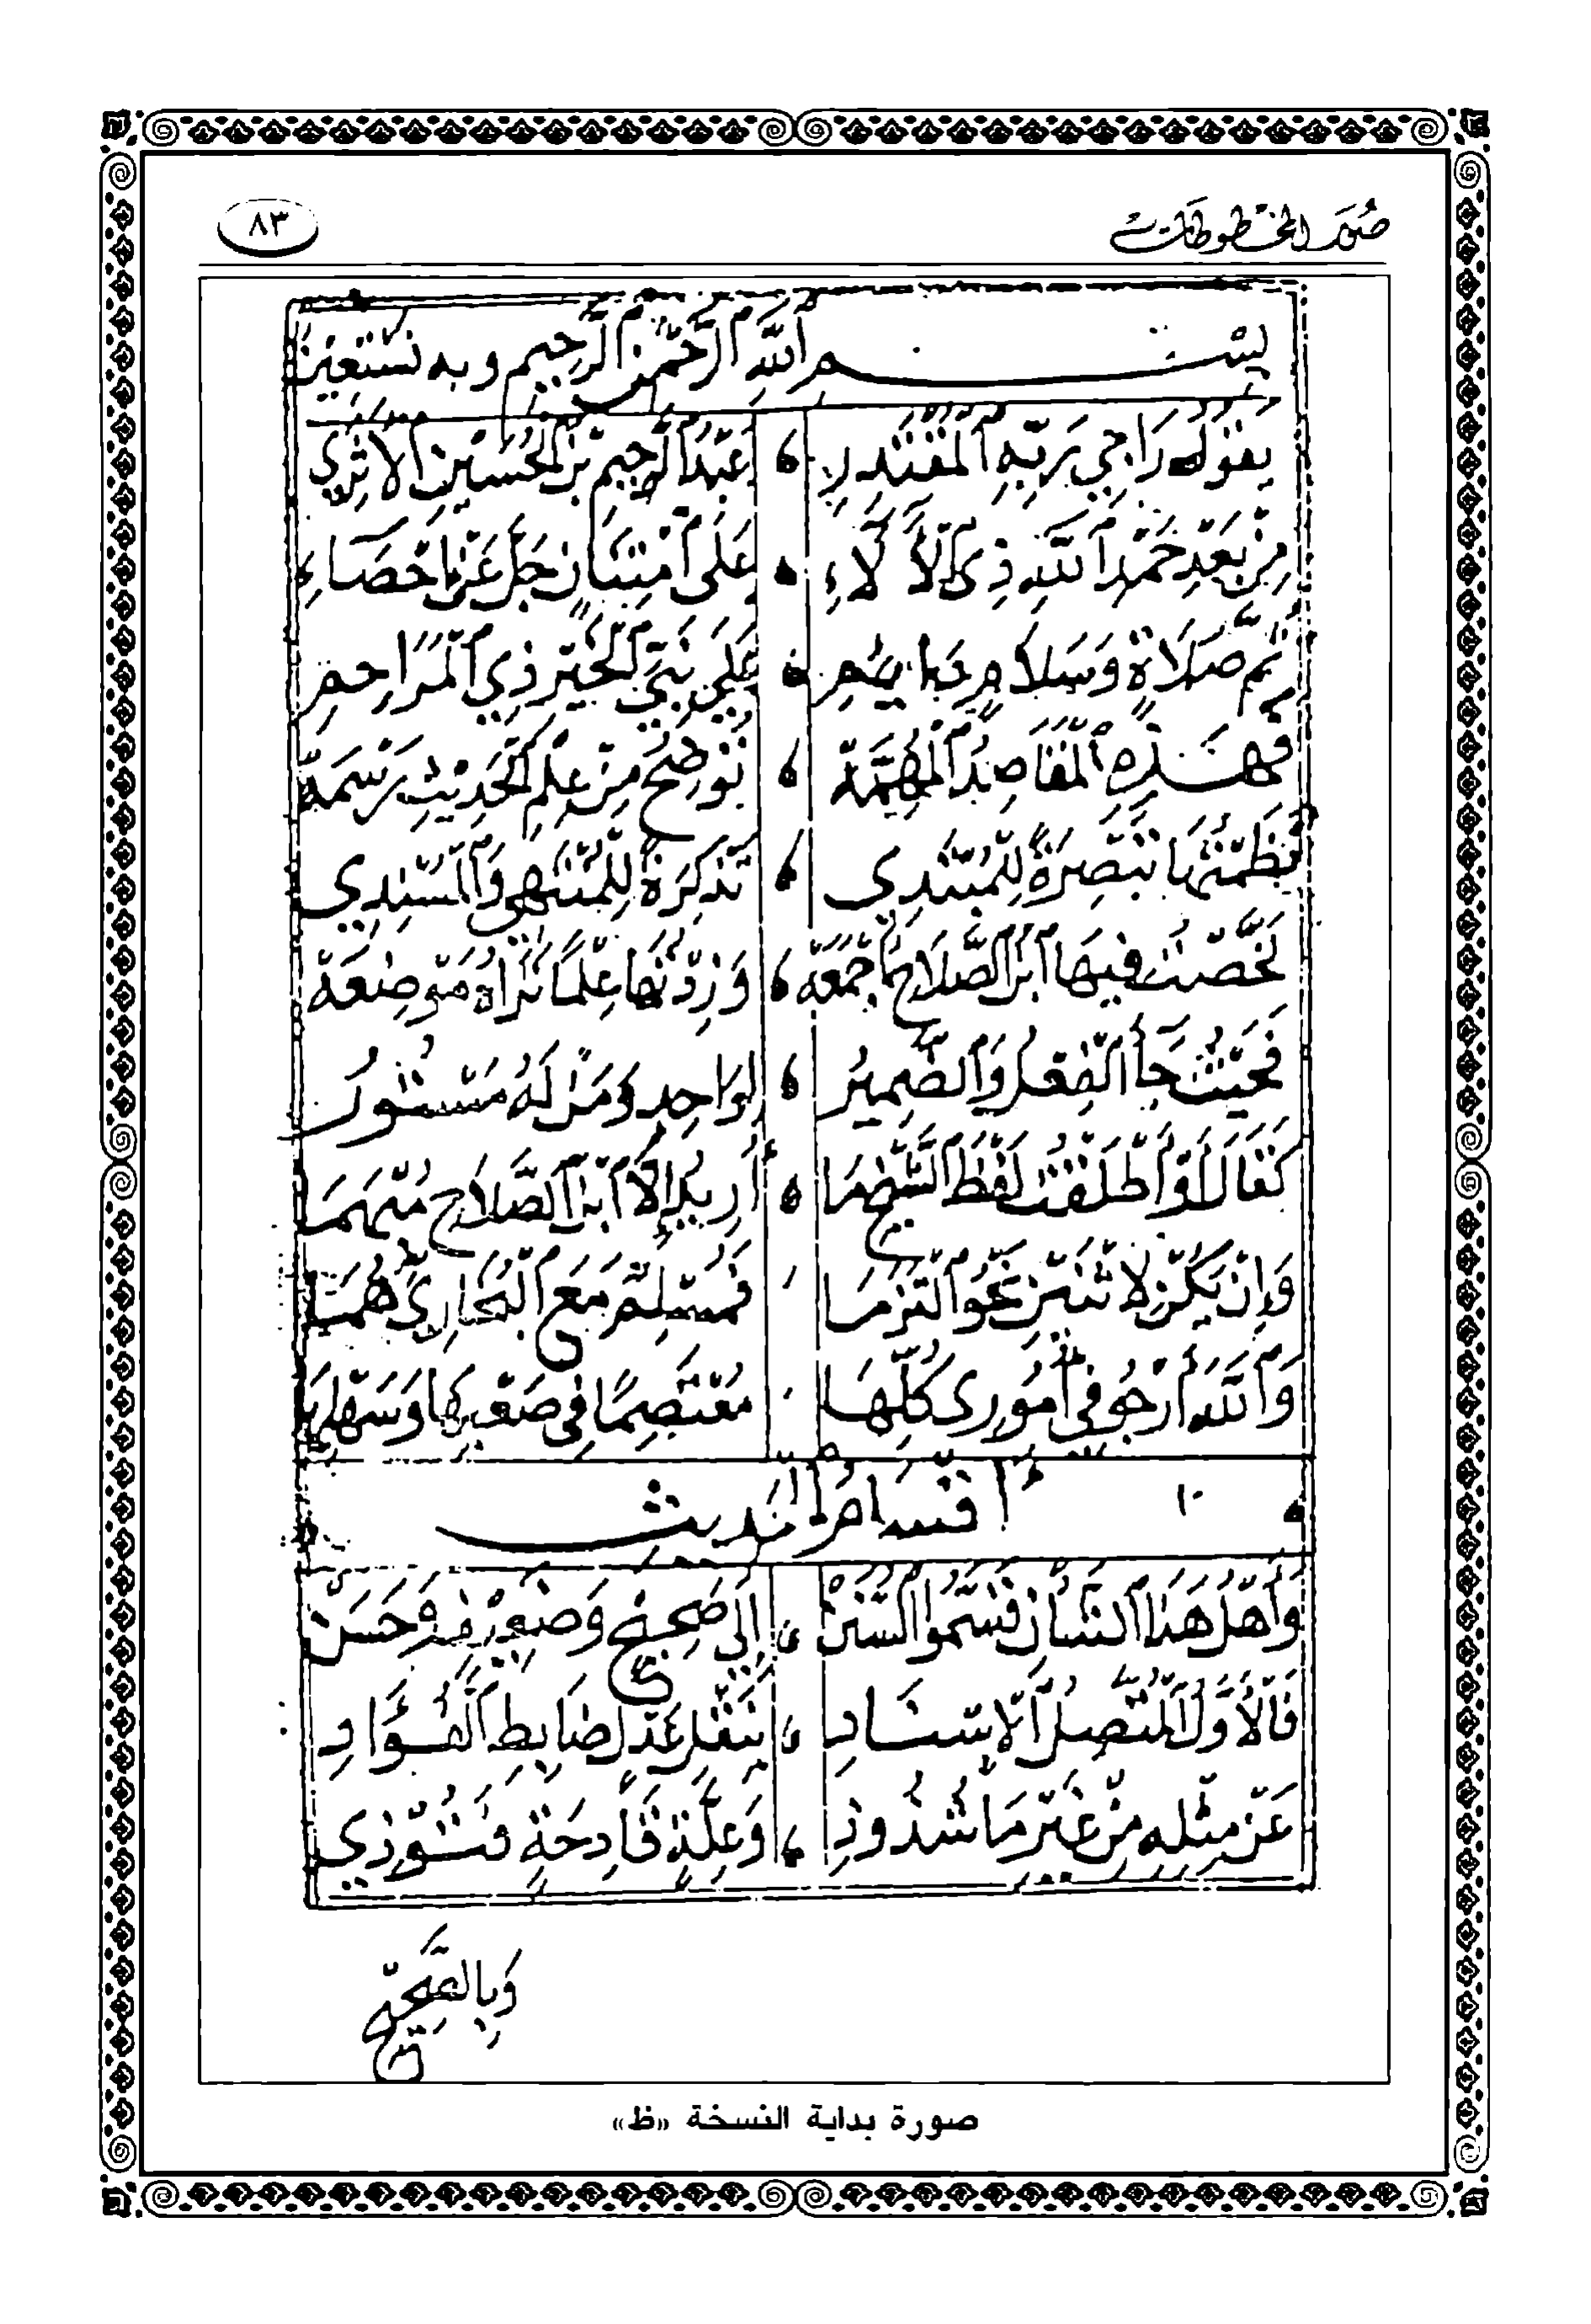 صور المخطوطات
٨٣
بسم الله الرحمن الرحيم وبه نستعين
يَقُولُ رَاجِي رَبِّهِ الْمُقْتَدِرِ عَبْدُ الرَّحِيمِ بْنُ الْحُسَيْنِ الْأَثَرِي
مِنْ بَعْدِ حَمْدِ اللَّهِ ذِي الْآلَاءِ عَلَى امْتِنَانٍ جَلَّ عَنْ إِحْصَاءِ
ثُمَّ صَلَاةٍ وَسَلَامٍ دَايِمِ عَلَى نَبِيِّ الْخَيْرِ ذِي الْمَرَاحِمِ
فَهَذِهِ الْمَقَاصِدُ الْمُهِمَّهْ تُوضِحُ مِنْ عِلْمِ الْحَدِيثِ رَسْمَهْ
نَظَمْتُهَا تَبْصِرَةً لِلْمُبْتَدِي تَذْكِرَةً لِلْمُنْتَهِي وَالْمُسْنِدِي
لَخَّصْتُ فِيهَا ابْنَ الصَّلَاحِ أَجْمَعَهْ وَزِدْتُهَا عِلْمًا تَرَاهُ مَوْضِعَهْ
فَحَيْثُ جَا الْفِعْلُ وَالضَّمِيرُ لِوَاحِدٍ وَمَنْ لَهُ مَسْتُورُ
كَقَالَ أَوْ أَطْلَقْتُ لَفْظَ الشَّيْخِ مَا أُرِيدُ إِلَّا ابْنَ الصَّلَاحِ مُبْهَمَا
وَإِنْ يَكُنْ لِاثْنَيْنِ نَحْوُ الْتَزَمَا فَمُسْلِمٌ مَعَ الْبُخَارِيِّ هُمَا
وَاللَّهَ أَرْجُو فِي أُمُورِي كُلِّهَا مُعْتَصِمًا فِي صَعْبِهَا وَسَهْلِهَا
١٠ أقسام الحديث
وَأَهْلُ هَذَا الشَّأْنِ قَسَّمُوا السُّنَنْ إِلَى صَحِيحٍ وَضَعِيفٍ وَحَسَنْ
فَالْأَوَّلُ الْمُتَّصِلُ الْإِسْنَادِ بِنَقْلِ عَدْلٍ ضَابِطِ الْفُؤَادِ
عَنْ مِثْلِهِ مِنْ غَيْرِ مَا شُذُوذِ وَعِلَّةٍ قَادِحَةٍ فَتُوذِي
وَبِالصَّحِيحِ
صورة بداية النسخة «ظ»